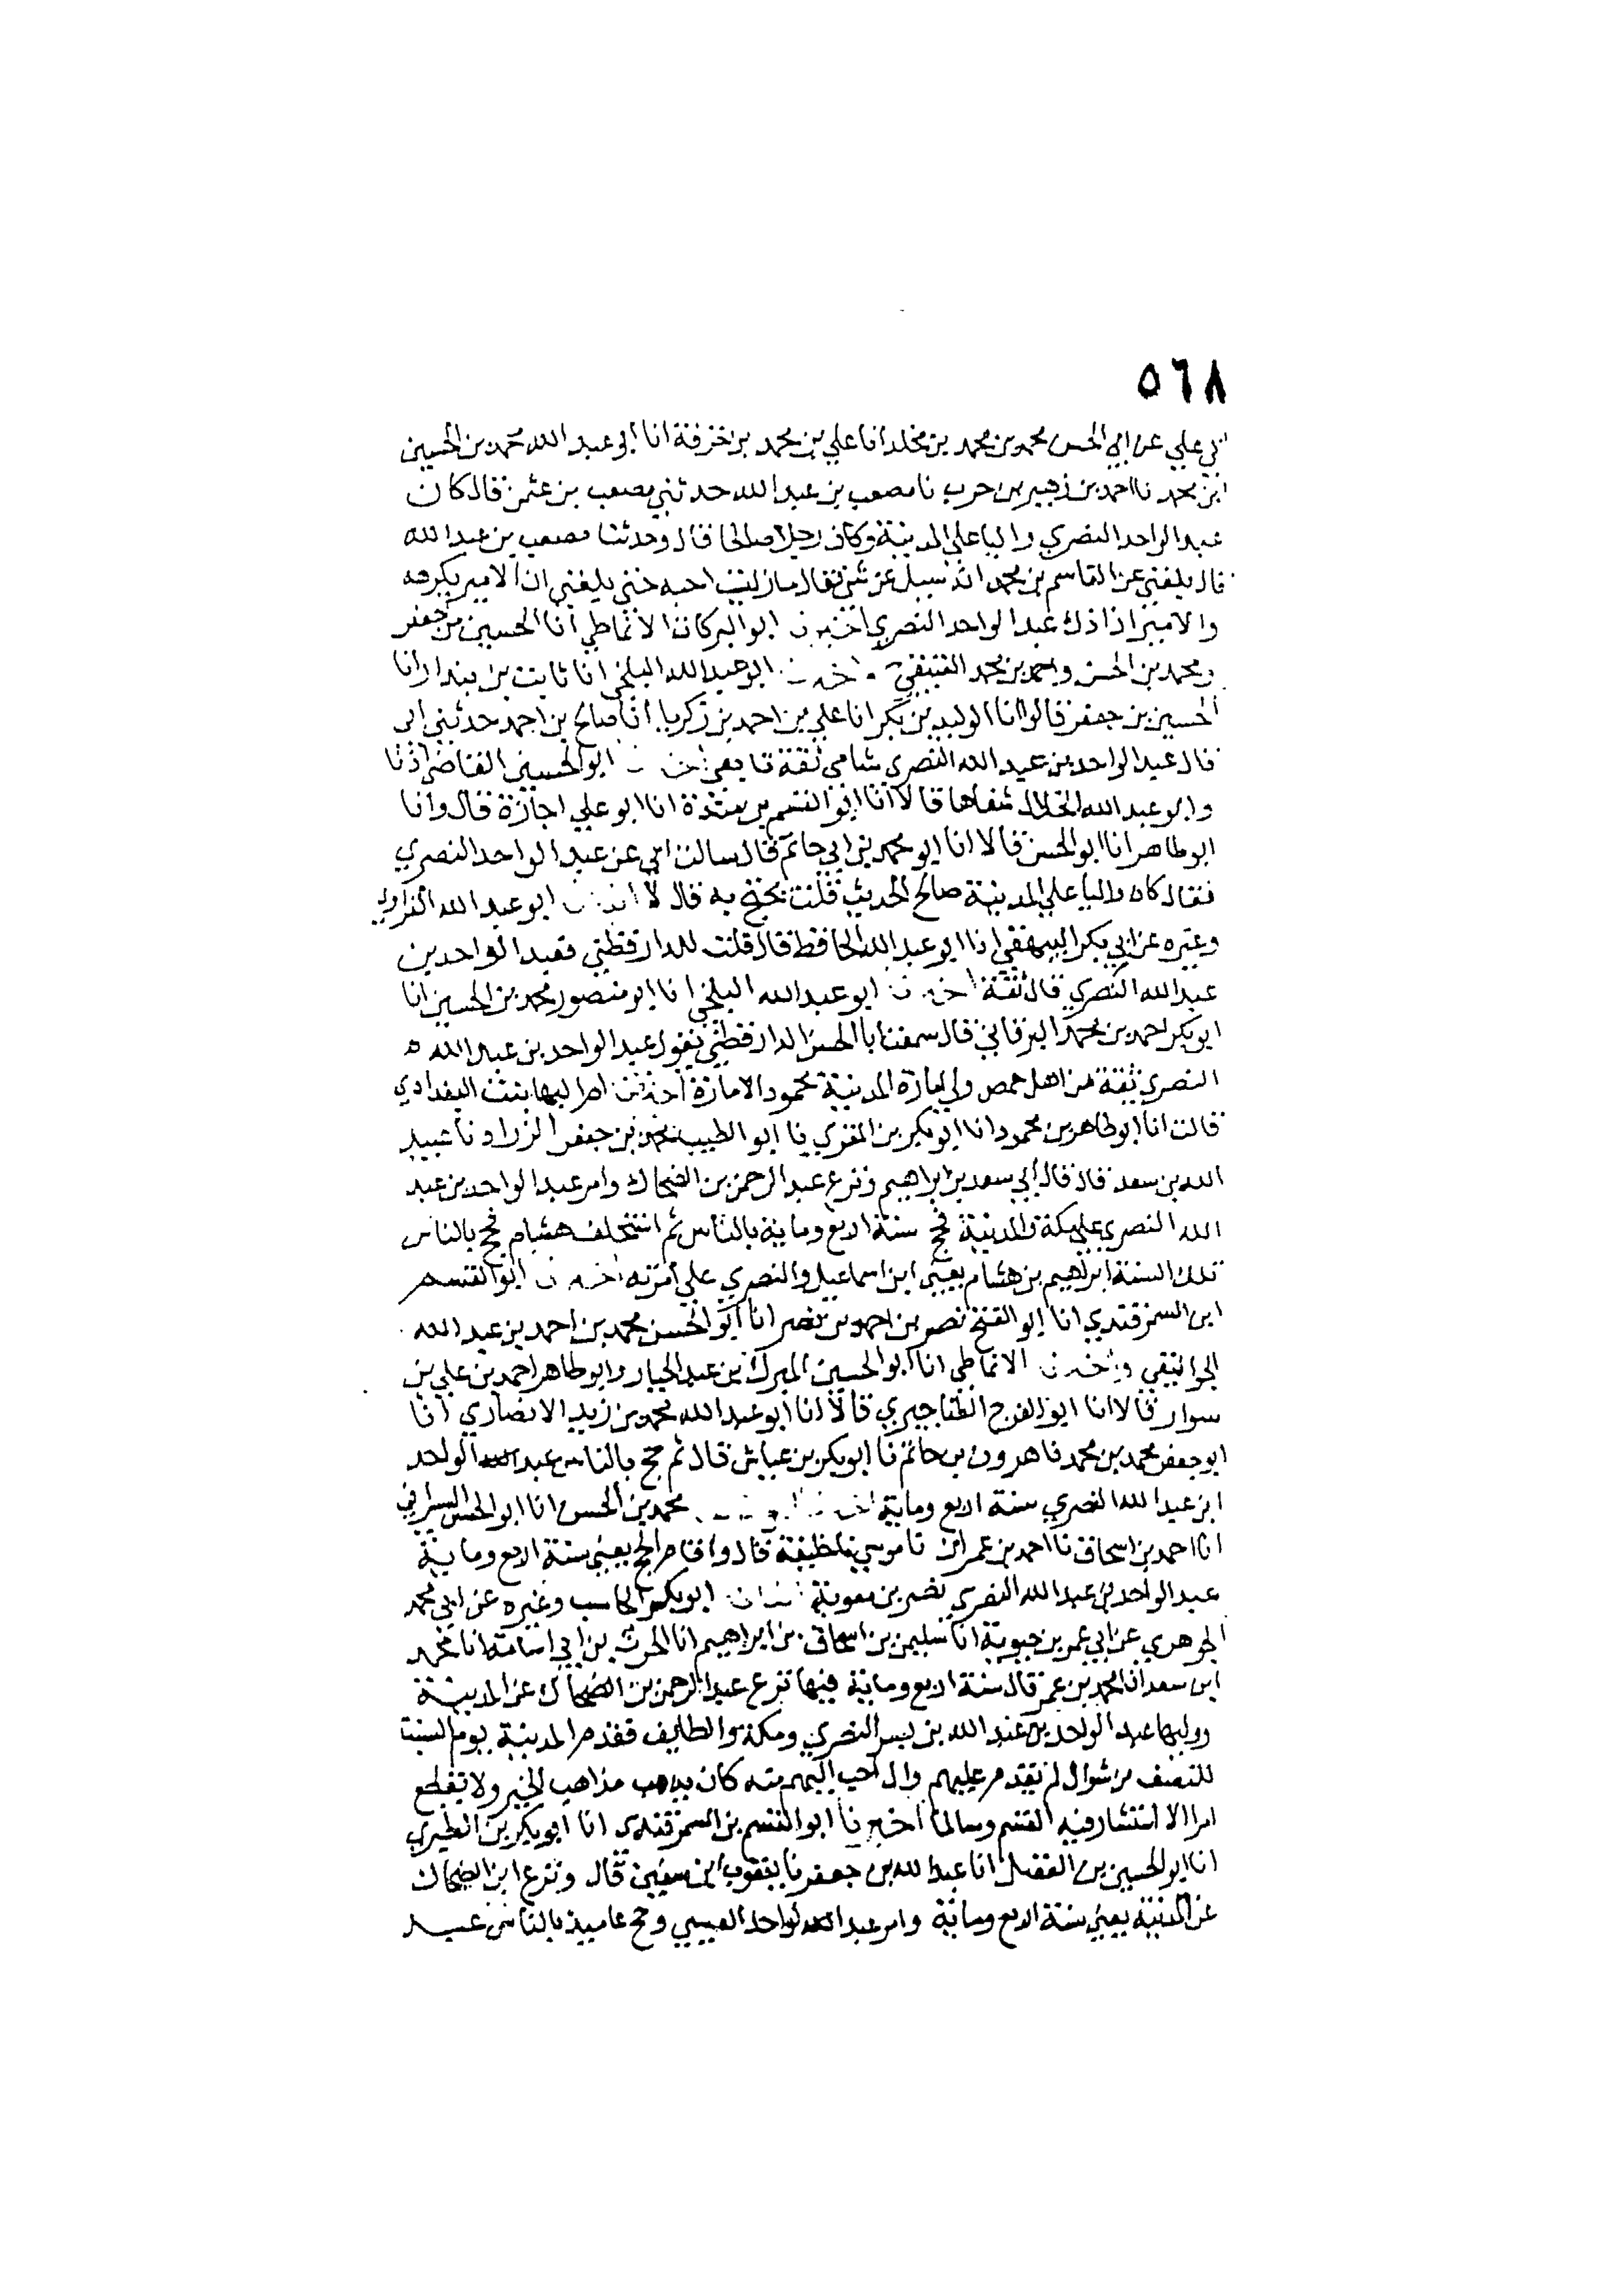 ٥٦٨
ابي علي عن ابي الحسن محمد بن محمد بن مخلد انا علي بن محمد بن خزفة انا ابو عبد الله محمد بن الحسين
ابن محمد نا احمد بن زهير بن حرب نا مصعب بن عبد الله حدثني مصعب بن عثمن قال كان
عبد الواحد النصري واليا علي المدينة وكان رجلا صالحا قال وحدثنا مصعب بن عبد الله
قال بلغني عن القاسم بن محمد انه سيل عن شي فقال ما زلت احبه حتي بلغني ان الامير يكرهه
والامير اذ ذاك عبد الواحد النصري اخبرنا ابو البركات الانماطي انا الحسين بن جعفر
ومحمد بن الحسن واحمد بن محمد العتيقي واخبرنا ابو عبد الله البلخي انا ثابت بن بندار انا
الحسين بن جعفر قالوا انا الوليد بن بكر انا علي بن احمد بن زكريا انا صالح بن احمد حدثني ابي
قال عبد الواحد بن عبد الله النصري شامي ثقة تابعي اخبرنا ابو الحسين القاضي اذنا
وابو عبد الله الخلال شفاها قالا انا ابو القسم بن مندة انا ابو علي اجازة قال وانا
ابو طاهر انا ابو الحسن قالا انا ابو محمد بن ابي حاتم قال سالت ابي عن عبد الواحد النصري
فقال كان واليا علي المدينة صالح الحديث قلت يحتج به قال لا اخبرنا ابو عبد الله الفراوي
وغيره عن ابي بكر البيهقي انا ابو عبد الله الحافظ قال قلت للدارقطني فعبد الواحد بن
عبد الله النصري قال ثقة اخبرنا ابو عبد الله البلخي انا ابو منصور محمد بن الحسين انا
ابو بكر احمد بن محمد البرقاني قال سمعت ابا الحسن الدارقطني يقول عبد الواحد بن عبد الله
النصري ثقة من اهل حمص ولي امارة المدينة محمود الامارة اخبرتنا ام البهاء بنت البغدادي
قالت انا ابو طاهر بن محمود انا ابو بكر بن المقري نا ابو الطيب محمد بن جعفر الزراد نا عبيد
الله بن سعد قال قال ابي سعد بن ابراهيم ونزع عبد الرحمن بن الضحاك وامر عبد الواحد بن عبد
الله النصري علي مكة والمدينة فحج سنة اربع وماية بالناس ثم استخلف هشام فحج بالناس
تلك السنة ابراهيم بن هشام يعني ابن اسماعيل والنصري علي امرته اخبرنا ابو القسم
ابن السمرقندي انا ابو الفتح نصر بن احمد بن نصر انا ابو الحسن محمد بن احمد بن عبد الله
الجواليقي واخبرنا الانماطي انا ابو الحسين المبرك بن عبد الجبار وابو طاهر احمد بن علي بن
سوار قالا انا ابو الفرج الطناجيري قالا انا ابو عبد الله محمد بن زيد الانصاري انا
ابو جعفر محمد بن محمد نا هرون بن حاتم نا ابو بكر بن عياش قال ثم حج بالناس عبد الواحد
ابن عبد الله النصري سنة اربع وماية محمد بن الحسن انا ابو الحسن السيرافي
انا احمد بن اسحاق نا احمد بن عمران نا موسي نا خليفة قال واقام الحج يعني سنة اربع وماية
عبد الواحد بن عبد الله النصري نصر بن معوية ابو بكر الحاسب وغيره عن ابي محمد
الجوهري عن ابي عمر بن حيوية انا سليمن بن اسحاق بن ابراهيم انا الحرث بن ابي اسامة انا محمد
ابن سعد انا محمد بن عمر قال سنة اربع وماية فيها نزع عبد الرحمن بن الضحاك عن المدينة
ووليها عبد الواحد بن عبد الله بن بسر النصري ومكة والطايف فقدم المدينة يوم السبت
للنصف من شوال لم يقدم عليهم وال احب اليهم منه كان يذهب مذاهب الخير ولا يقطع
امرا الا استشار فيه القسم وسالما اخبرنا ابو القسم بن السمرقندي انا ابو بكر بن الطبري
انا ابو الحسين بن الفضل انا عبد الله بن جعفر نا يعقوب بن سفيين قال ونزع ابن الضحاك
عن المدينة يعني سنة اربع وماية وامر عبد الواحد العبسي وحج عاميذ بالناس عبد